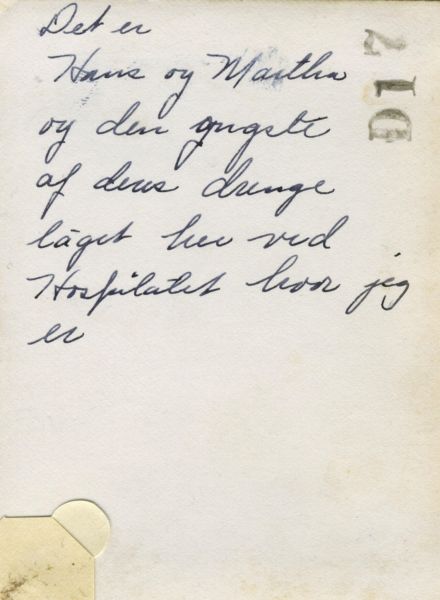 Det er
Hans og Martha
og den yngste
af deres drenge
låget her ved
Hospitalet hvor jeg
er
D17